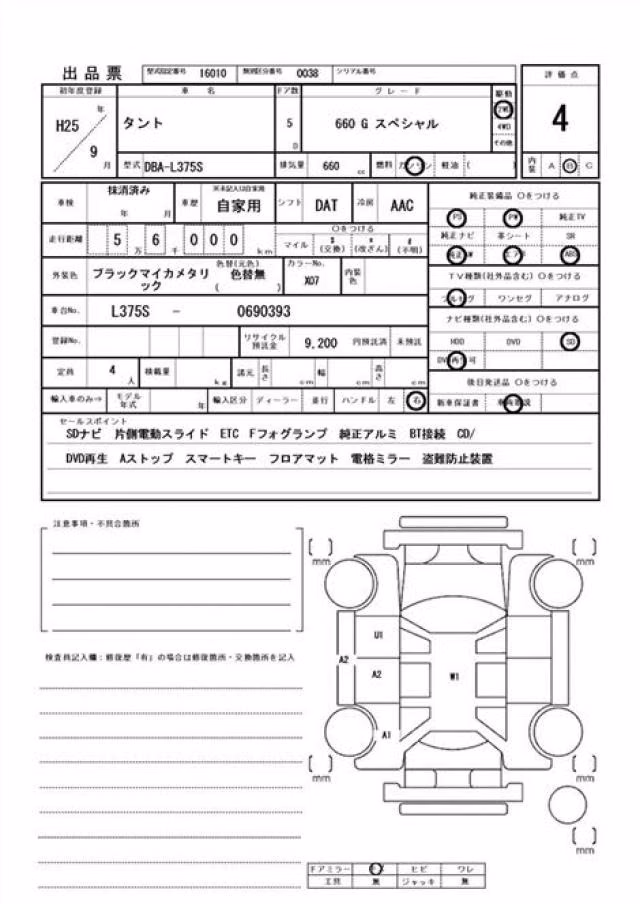 出品票 型式指定番号 16010 類別区分番号 0038 シリアル番号
評価点
初年度登録 車名 ドア数 グレード 駆動
H25 年 9 月 タント 5 D 660 G スペシャル 2WD 4WD その他
4
型式 DBA-L375S 排気量 660 cc 燃料 ガソリン 軽油 ( )
内装 A B C
車検 抹消済み 年 月 車歴 ※未記入は自家用 自家用 シフト DAT 冷房 AAC
純正装備品 〇をつける
PS PW 純正TV
走行距離 5 万 6 千 0 0 0 km 〇をつける
マイル $ (交換) * (改ざん) # (不明)
純正ナビ 革シート SR
純正AW エアB ABS
外装色 ブラックマイカメタリック 色替(元色) 色替無 ( ) カラーNo. X07 内装色
TV種類(社外品含む) 〇をつける
フルセグ ワンセグ アナログ
車台No. L375S - 0690393
ナビ種類(社外品含む) 〇をつける
登録No. リサイクル預託金 9,200 円預託済 未預託
HDD DVD SD
DVD再生可
定員 4 人 積載量 kg 諸元 長さ cm 幅 cm 高さ cm
後日発送品 〇をつける
輸入車のみ⇒ モデル年式 年 輸入区分 ディーラー 並行 ハンドル 左 右
新車保証書
セールスポイント
SDナビ 片側電動スライド ETC Fフォグランプ 純正アルミ BT接続 CD/
DVD再生 Aストップ スマートキー フロアマット 電格ミラー 盗難防止装置
注意事項・不具合箇所
検査員記入欄:修復歴「有」の場合は修復箇所・交換箇所を記入
[ ] mm
[ ] mm
U1
A2
A2
W1
A1
[ ] mm
[ ] mm
[ ] mm
Fアミラー キズ ヒビ ワレ
工具 無 ジャッキ 無